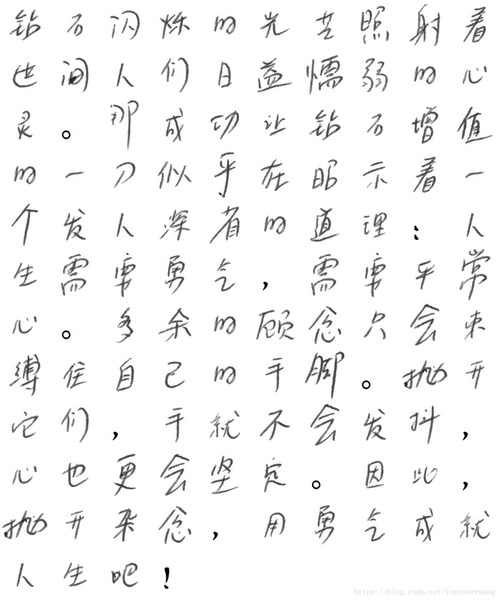 钻石闪烁的光芒照射着
世间人们日益懦弱的心
灵。那成功让钻石增值
的一刀似乎在昭示着一
个发人深省的道理：人
生需要勇气，需要平常
心。多余的顾念只会束
缚住自己的手脚。抛开
它们，手就不会发抖，
心也更会坚定。因此，
抛开杂念，用勇气成就
人生吧！
https://blog.csdn.net/foreseerwang